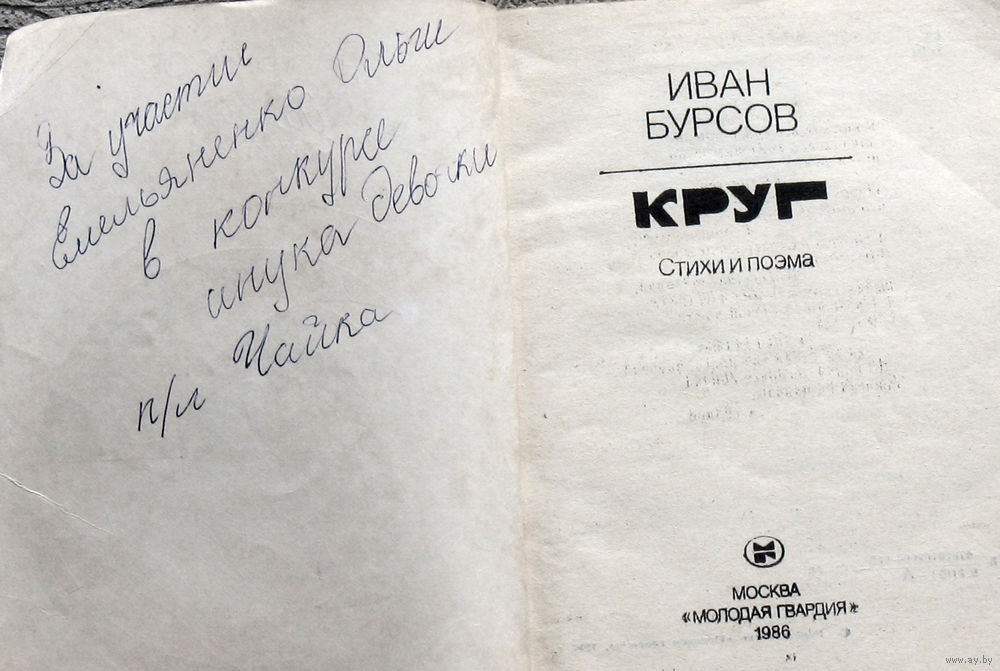 За участие
Емельяненко Ольги
в конкурсе
анука девочки
п/л Чайка
ИВАН
БУРСОВ
КРУГ
СТИХИ И ПОЭМА
МОСКВА
«МОЛОДАЯ ГВАРДИЯ»
1986
www.ay.by